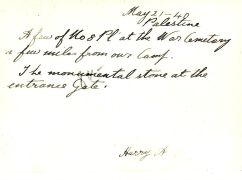 May 21-40
Palestine
A few of No 8 Pl at the War Cemetary
a few miles from our Camp.
The monumental stone at the
entrance Gate.
Harry A